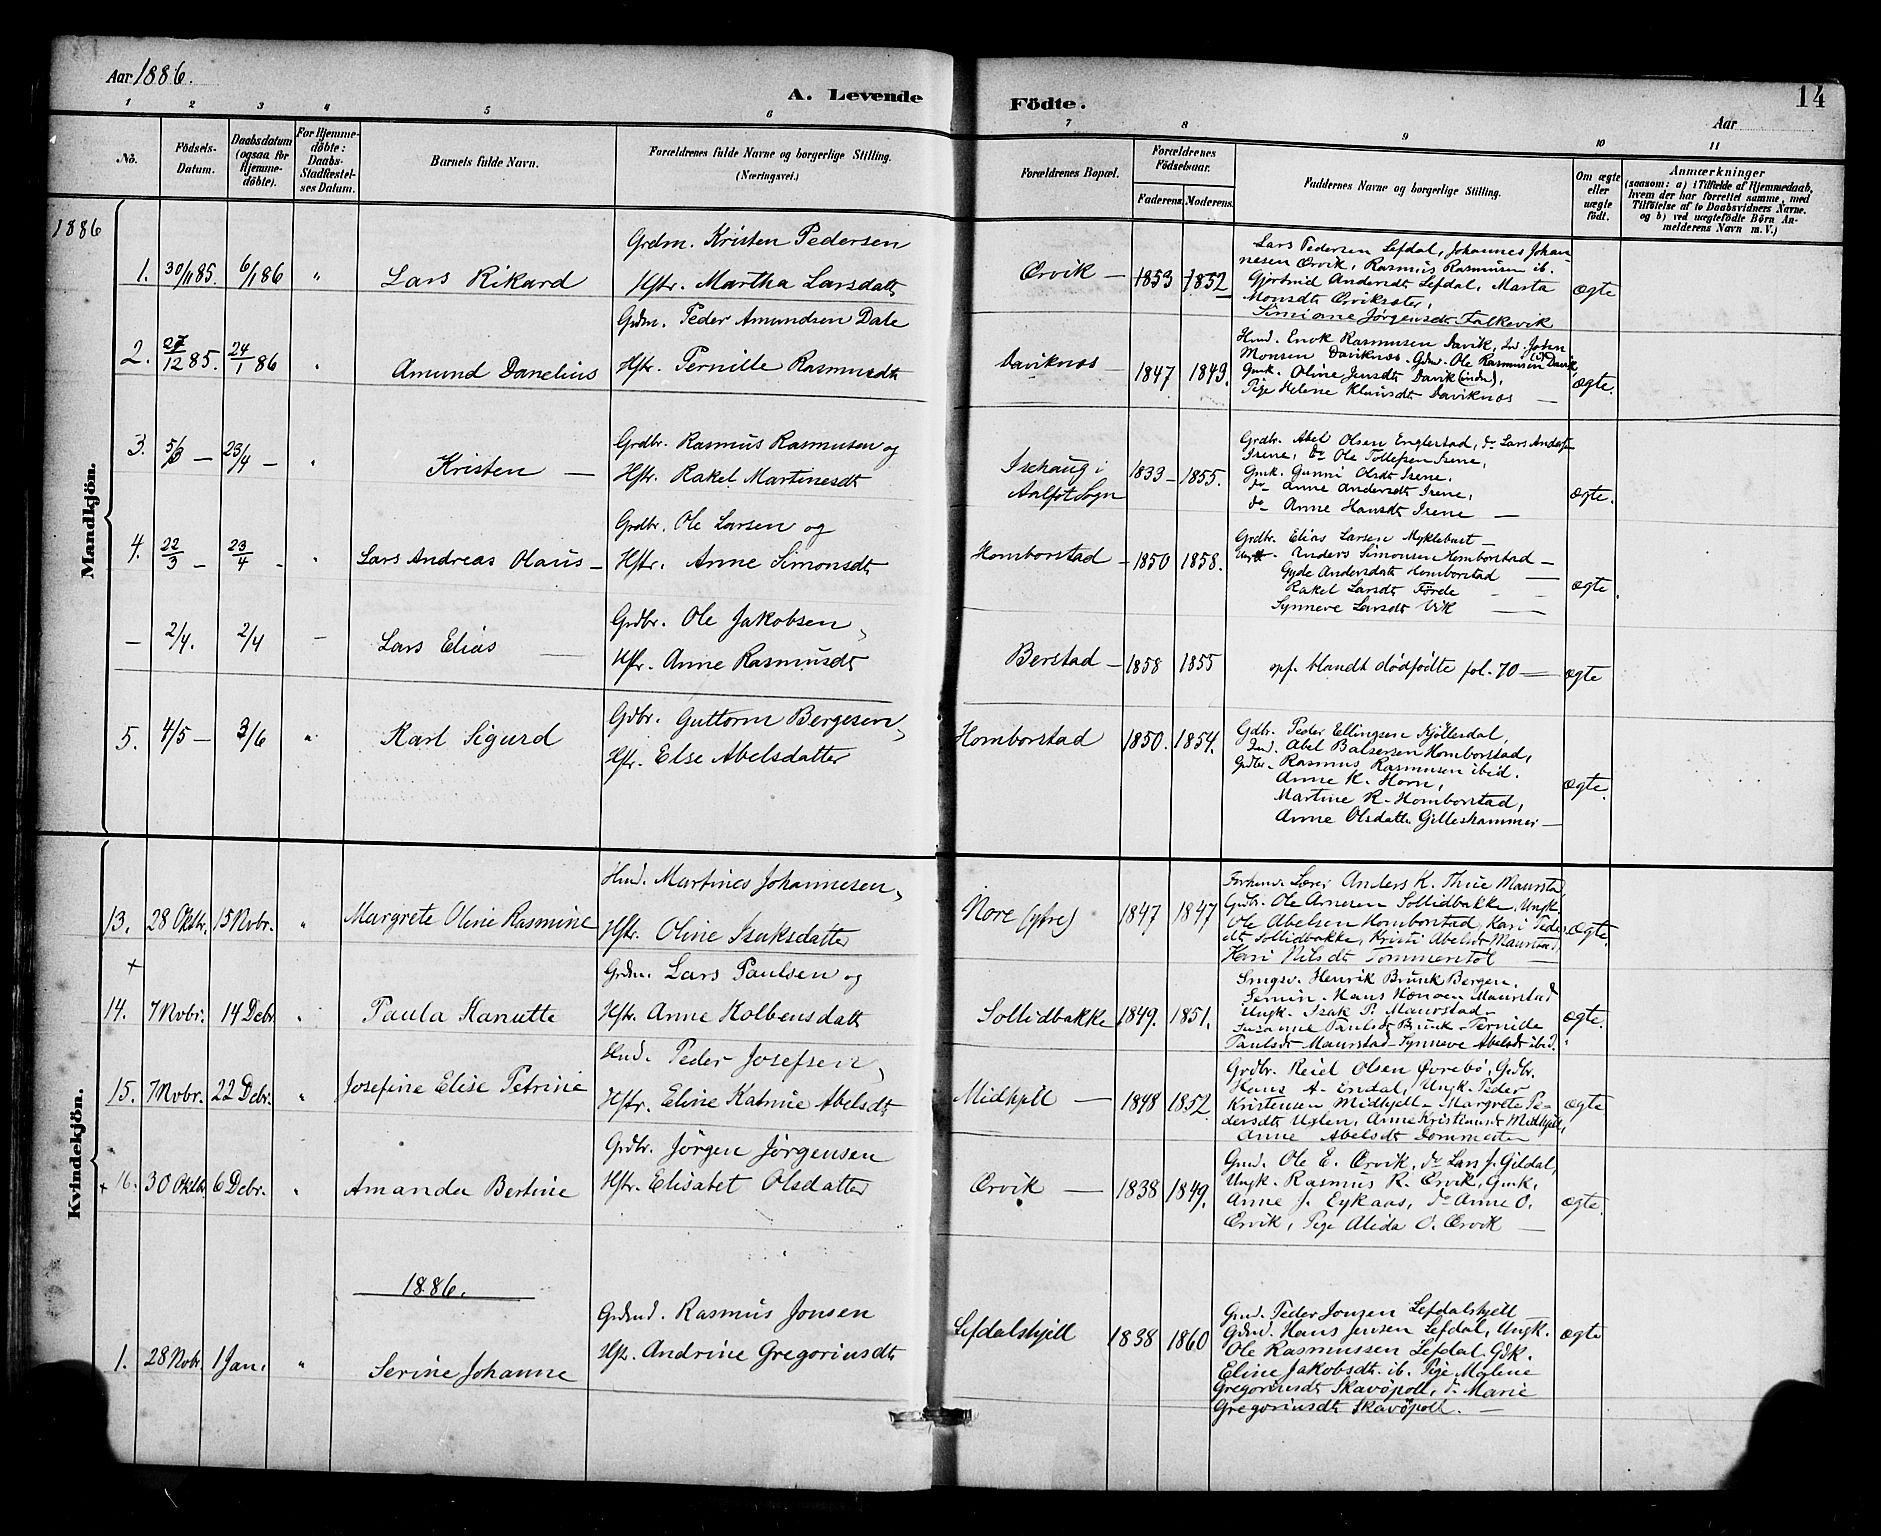 Aar 1886.
A. Levende Födte.
14
Aar
1 2 3 4 5 6 7 8 9 10 11
No.
Födsels-Datum.
Daabsdatum (ogsaa for Hjemme-döbte).
For Hjemme-döbte: Daabs-Stadfæstel-ses Datum.
Barnets fulde Navn.
Forældrenes fulde Navne og borgerlige Stilling. (Næringsvei.)
Forældrenes Bopæl.
Forældrenes Födselsaar.
Faderens. Moderens.
Faddernes Navne og borgerlige Stilling.
Om ægte eller uægte födt.
Anmærkninger
(saasom: a) i Tilfælde af Hjemmedaab,
hvem der har forrettet samme, med
Tilföielse af to Daabsvidners Navne.
og b) ved uægtefödte Börn An-
melderens Navn m. V.)
Mandkjön.
1886
1. 30/11 85. 6/1 86 " Lars Rikard
Grdm. Kristen Pedersen
Hstr. Martha Larsdatt
Ørvik — 1853 1852
Lars Pedersen Lefdal, Johannes Johan
nesen Ørvik, Rasmus Rasmusen ib.
Gjertrud Andersdt Lefdal, Marta
Monsdt Ørviksæter,
Simiane Jörgensdt Falkevik
ægte
2. 27/12 85. 24/1 86 " Amund Danelius
Grdm. Peder Amundsen Dale
Hstr. Pernille Rasmusdt
Daviknæs — 1847 1843.
Hmd. Enok Rasmusen Davik, Ind. John
Monsen Daviknæs. Gdm. Ole Rasmusen Davik,
Gmk. Oline Jensdt Davik (indr),
Pige Helene Klausdt Daviknæs —
ægte.
3. 5/3 — 23/4 — " Kristen —
Grdbr. Rasmus Rasmusen og
Hstr. Rakel Martinesdt
Isehaug i
Aalfot Sogn
1833 — 1855.
Grdbr. Abel Olsen Englestad, do Lars Anders
Isene, do Ole Tollefsen Isene,
Gmk. Gunni Olsdt Isene,
do Anne Andersdt Isene,
do Anne Hansdt Isene —
ægte.
4. 22/3 — 23/4 — " Lars Andreas Olaus —
Grdbr. Ole Larsen og
Hstr. Anne Simonsdt
Homborstad — 1850 1858.
Grdbr. Elias Larsen Myklebust —
Ungk. Anders Simonsen Homborstad —
Gyde Andersdatt Homborstad —
Rakel Larsdt Förde —
Synneve Larsdt Vik —
ægte.
— 2/4. 2/4 — Lars Elias —
Grdbr. Ole Jakobsen,
Hstr. Anne Rasmusdt
Berstad — 1858 1855
opf. blandt dödfödte fol. 70 — ægte
5. 4/5 — 3/6 " Karl Sigurd
Gdbr. Guttorm Bergesen,
Hstr. Else Abelsdatter
Homborstad 1850. 1854.
Gdbr. Peder Ellingsen Kjöllesdal,
Ind. Abel Balsersen Homborstad,
Grdbr. Rasmus Rasmusen ibid.
Anne K. Horn,
Martine R. Homborstad,
Anne Olsdatt. Gilleshammer —
ægte.
Kvindekjön.
13. 28 Oktbr. 15 Novbr. " Margrete Oline Rasmine
Hmd. Martines Johannesen,
Hstr. Oline Isaksdatter
Nore (yttre) 1847 1847
Forhenv. Lærer Anders K. Thue Maursta
Gdbr. Ole Arnesen Sollidbakke, Ungk.
Ole Abelsen Homborstad, Kari Peder
dt Sollidbakke, Kristi Abelsdt Maurstad,
Kari Nilsdt Tommerstöl —
ægte.
+
14. 7 Novbr. 14 Debr. " Paula Hanutte
Grdm. Lars Paulsen og
Hstr. Anne Kolbensdatt
Sollidbakke 1849. 1851.
Smgsv. Henrik Brunk Bergen,
Semin. Hans Maurstad
Ungk. Isak P. Maurstad
Susanne Paulsdt Brunk — Pernille
Paulsdt Maurstad — Synneve Abelsdt ibid.
ægte.
15. 7 Novbr. 22 Debr. " Josefine Elise Petrine
Hmd. Peder Josefsen,
Hstr. Eline Katrine Abelsdt
Midhjell — 1848 1852.
Grdbr. Reiel Olsen Øvrebö, Gdbr.
Hans A. Endal, Ungk. Peder
Kristensen Midhjell — Margrete Pe-
dersdt Uglen, Anne Kristiansdt Midhjell,
Anne Abelsdt Dommesten
ægte
+ 16. 30 Oktbr 6 Debr. " Amanda Bertine
Grdbr. Jörgen Jörgensen
Hstr. Elisabet Olsdatter
Ørvik — 1838 1849.
Gmd. Ole E. Ørvik, do Lars J. Gildal,
Ungk. Rasmus R. Ørvik, Gmk.
Anne J. Eykaas, do Anne O.
Ørvik, Pige Alida O. Ørvik —
ægte.
1886.
1. 28 Novbr. 1 Jan. " Serine Johanne
Grdmd. Rasmus Jonsen
Hstr. Andrine Gregoriusdt
Lefdalshjell 1838 1860
Gmd. Peder Jonsen Lefdalshjell
Gdmd. Hans Jensen Lefdal, Ungk.
Ole Rasmussen Lefdal, Gdk.
Eline Jakobsdt. ib. Pige Malene
Gregoriusdt Skavöpoll, do Marie
Gregoriusdt Skavöpoll. —
ægte